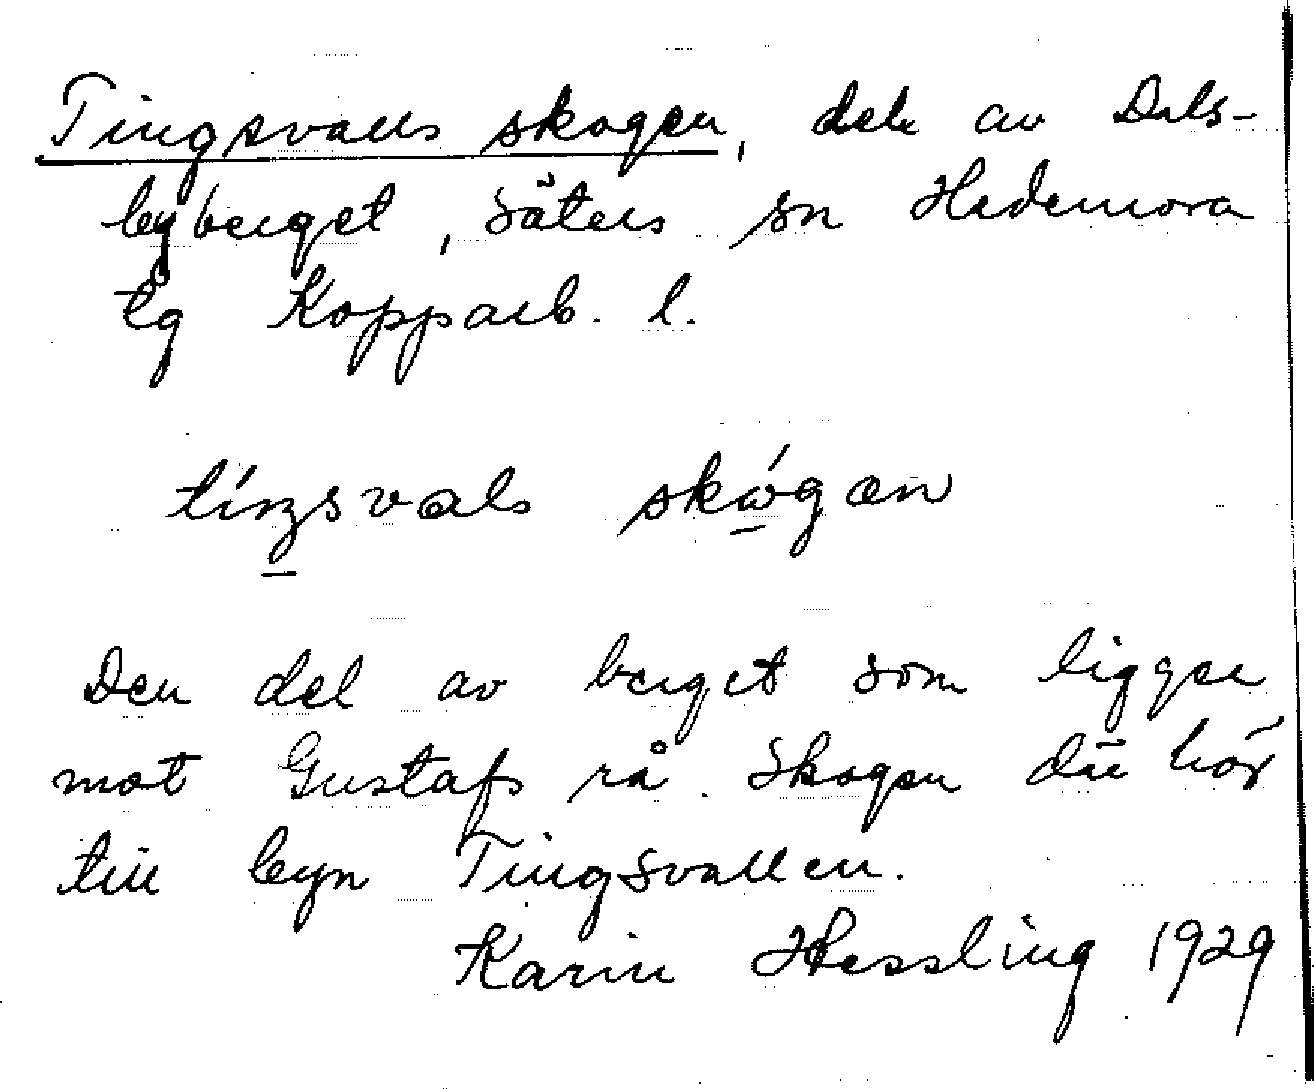 Tingsvalls skogen, del av Dals-
byberget, Säters sn Hedemora
tg Kopparb. l.
tíŋsvals skógan
Den del av berget som ligger
mot Gustafs rå. Skogen där hör
till byn Tingsvallen.
Karin Hessling 1929